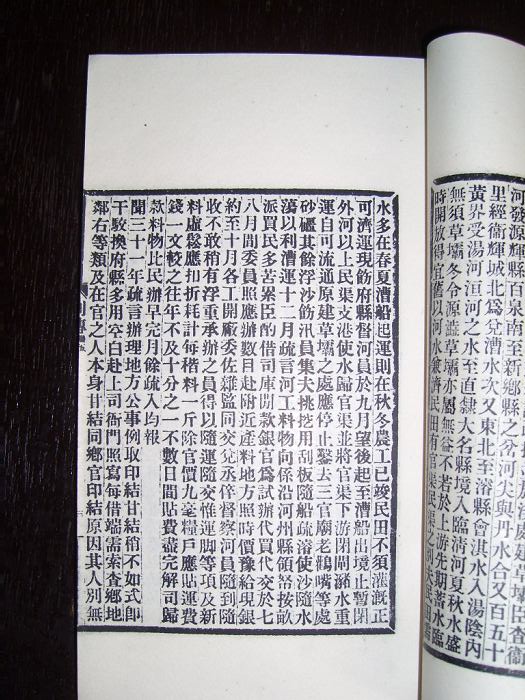 河發源輝縣百泉南至新鄉縣之合河與丹水合又百五十
里經衛輝城北為兌漕水次又東北至濬縣會淇水入湯陰內
黃界受湯河洹河之水至直隸大名縣境入臨淸河夏秋水盛
無須草壩冬令源澁草壩亦屬無益不若於上游先期蓄水臨
時開放得宜舊以河水兼濟民田有官渠民渠之別夫民田需
水多在春夏漕船起運則在秋冬農工已竣民田不須灌漑正
可濟運現飭府縣督河員於九月望後起至漕船出境止暫閉
外河以上民渠支港使水歸官渠並將官渠下游閉閘諸水重
運自可流通原建草壩之處應停止鏨去三官廟老鸛嘴等處
砂礓其餘浮沙飭汛員集夫挑挖用刮板隨船疏溶使沙隨水
蕩以利漕運十二月疏言河工料物向係沿河州縣領帑按畝
派買民多苦累臣酌借司庫閒款銀官為試辦代買代交於七
八月間委員照應辦數目赴附近產料地方照時價豫給現銀
約至十月各工開廠委佐雜監同交兌丞倅督察河員隨到隨
收不敢稍有浮重承辦之員得以隨運隨交惟運脚等項及新
料虛鬆應扣折耗計每稭料一斤除官價九毫糧戶應貼運費
錢一文較之往年不及十分之一不數日間貼費盡完解司歸
款料物比民辦早完月餘疏入均報
聞三十一年疏言辦理地方公事例取印結甘結稍不如式卽
干駮換府縣多用空白赴上司衙門照寫每借端需索查鄉地
鄰右等類及在官之人本身甘結同鄉官印結原因其人別無